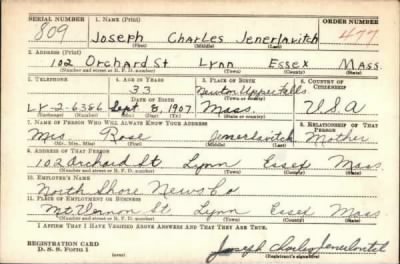 SERIAL NUMBER 1. NAME (Print) ORDER NUMBER
809 Joseph Charles Jenerlavitch 477
(First) (Middle) (Last)
2. ADDRESS (Print)
102 Orchard St Lynn Essex Mass.
(Number and street or R. F. D. number) (Town) (County) (State)
3. TELEPHONE 4. AGE IN YEARS 5. PLACE OF BIRTH 6. COUNTRY OF CITIZENSHIP
33 Newton Upper Falls
DATE OF BIRTH (Town or county)
LY-2-6386 Sept 8, 1907 Mass. USA
(Exchange) (Number) (Mo.) (Day) (Yr.) (State or country)
7. NAME OF PERSON WHO WILL ALWAYS KNOW YOUR ADDRESS 8. RELATIONSHIP OF THAT PERSON
Mrs. Rose Jenerlavitch Mother
(Mr., Mrs., Miss) (First) (Middle) (Last)
9. ADDRESS OF THAT PERSON
102 Orchard St. Lynn Essex Mass
(Number and street or R. F. D. number) (Town) (County) (State)
10. EMPLOYER'S NAME
North Shore News Co
11. PLACE OF EMPLOYMENT OR BUSINESS
Mt. Vernon St. Lynn Essex Mass
(Number and street or R. F. D. number) (Town) (County) (State)
I AFFIRM THAT I HAVE VERIFIED ABOVE ANSWERS AND THAT THEY ARE TRUE.
REGISTRATION CARD
D. S. S. Form 1
(over)
Joseph Charles Jenerlavitch
(Registrant's signature)